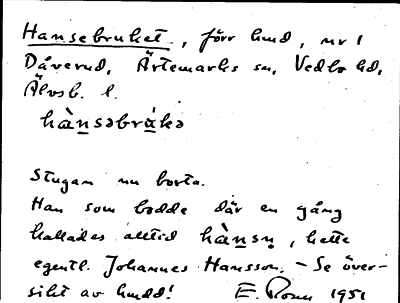 Hansebruket, förr hmd, nr 1
Dåverud, Ärtemarks sn, Vedbo hd,
Älvsb. l.
hànsəbrákə
Stugan nu borta.
Han som bodde där en gång
kallades alltid hànsn̥, hette
egentl. Johannes Hansson. – Se över-
sikt av hmdd! E. Ronn 1951